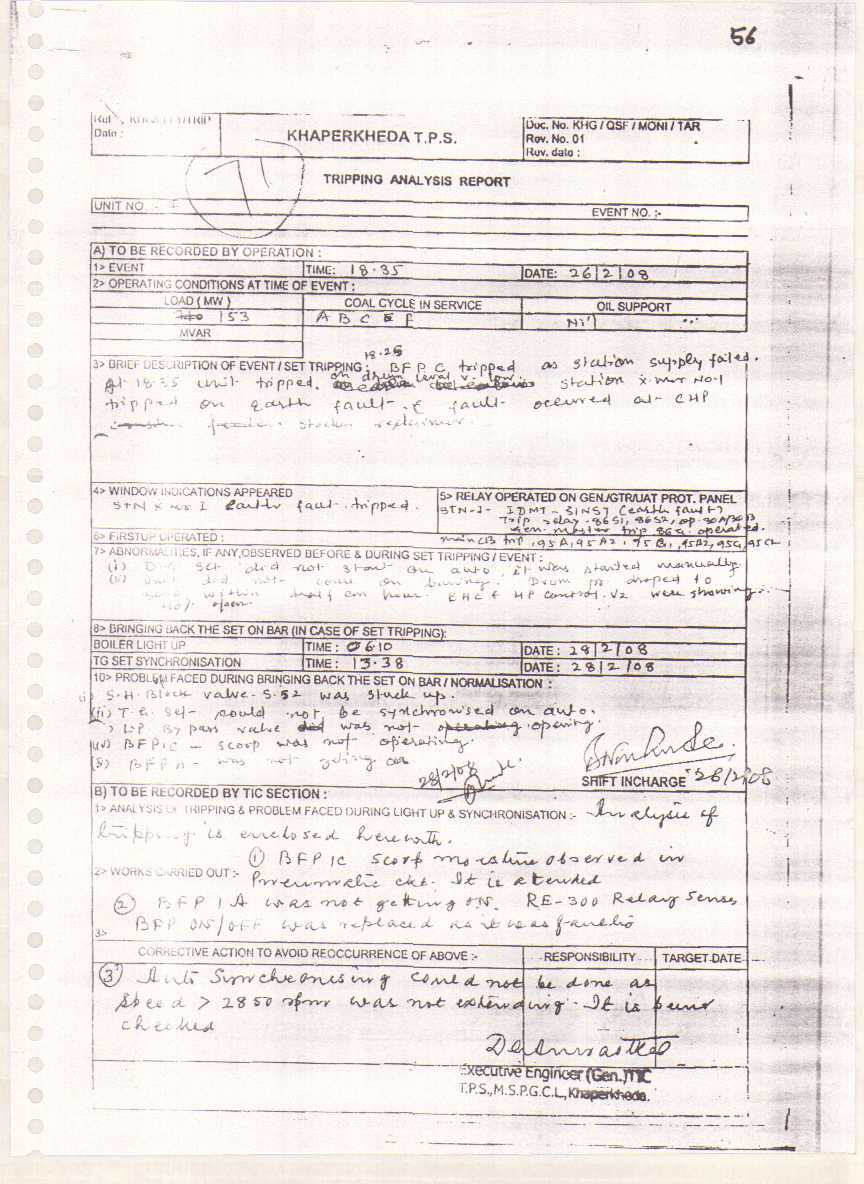 56
Date :
KHAPERKHEDA T.P.S.
Doc. No. KHG / QSF / MONI / TAR
Rev. No. 01
Rev. date :
TRIPPING ANALYSIS REPORT
UNIT NO. :-
EVENT NO. :-
A) TO BE RECORDED BY OPERATION :
1> EVENT TIME: 18.35 DATE: 26/2/08
2> OPERATING CONDITIONS AT TIME OF EVENT :
LOAD ( MW ) COAL CYCLE IN SERVICE OIL SUPPORT
153 A B C E F Nil
MVAR
18.25
3> BRIEF DESCRIPTION OF EVENT / SET TRIPPING : BFP C tripped as station supply failed.
At 18.35 unit tripped. on drum level v. low. station x-mer No-1
tripped on earth fault & fault occurred at CHP
stacker reclaimer.
4> WINDOW INDICATIONS APPEARED
STN X mer I Earth fault tripped.
5> RELAY OPERATED ON GEN/GTR/UAT PROT. PANEL
STN-I- IDMT - 51NST (earth fault)
Trip relay - 86S1, 86S2, op. 30A/30B
Gen. master trip 86G operated.
6> FIRSTUP OPERATED : main CB trip, 95A, 95A2, 95B, 95B2, 95C, 95C2
7> ABNORMALITIES, IF ANY,OBSERVED BEFORE & DURING SET TRIPPING / EVENT :
(i) D.G. set did not start on auto, it was started manually
(ii) unit did not come on baring. Drum pr. droped to
within half an hour. EHC & HP control. V2 were showing
10% open.
8> BRINGING BACK THE SET ON BAR (IN CASE OF SET TRIPPING):
BOILER LIGHT UP TIME : 06.10 DATE : 28/2/08
TG SET SYNCHRONISATION TIME : 13.38 DATE : 28/2/08
10> PROBLEM FACED DURING BRINGING BACK THE SET ON BAR / NORMALISATION :
(i) S.H. Block valve S.52 was stuck up.
(ii) T.G. Set- could not be synchronised on auto.
) L.P. By pass valve was not opening.
(iv) BFP1C - scoop was not operating.
(5) BFP A - was not going on
28/2/08
SHIFT INCHARGE 28/2/08
B) TO BE RECORDED BY TIC SECTION :
1> ANALYSIS OF TRIPPING & PROBLEM FACED DURING LIGHT UP & SYNCHRONISATION :- Analysis of
tripping is enclosed herewith.
① BFP 1C scoop moisture observed in
2> WORKS CARRIED OUT :- Pneumatic ckt. It is attended
② BFP 1A was not getting ON. RE-300 Relay senses
BFP ON/OFF was replaced as it was
3>
CORRECTIVE ACTION TO AVOID REOCCURRENCE OF ABOVE :- RESPONSIBILITY TARGET DATE
③ Auto Synchronising could not be done as
speed > 2850 rpm was not extending. It is being
checked
Executive Engineer (Gen.) TIC
T.P.S., M.S.P.G.C.L., Khaperkheda.